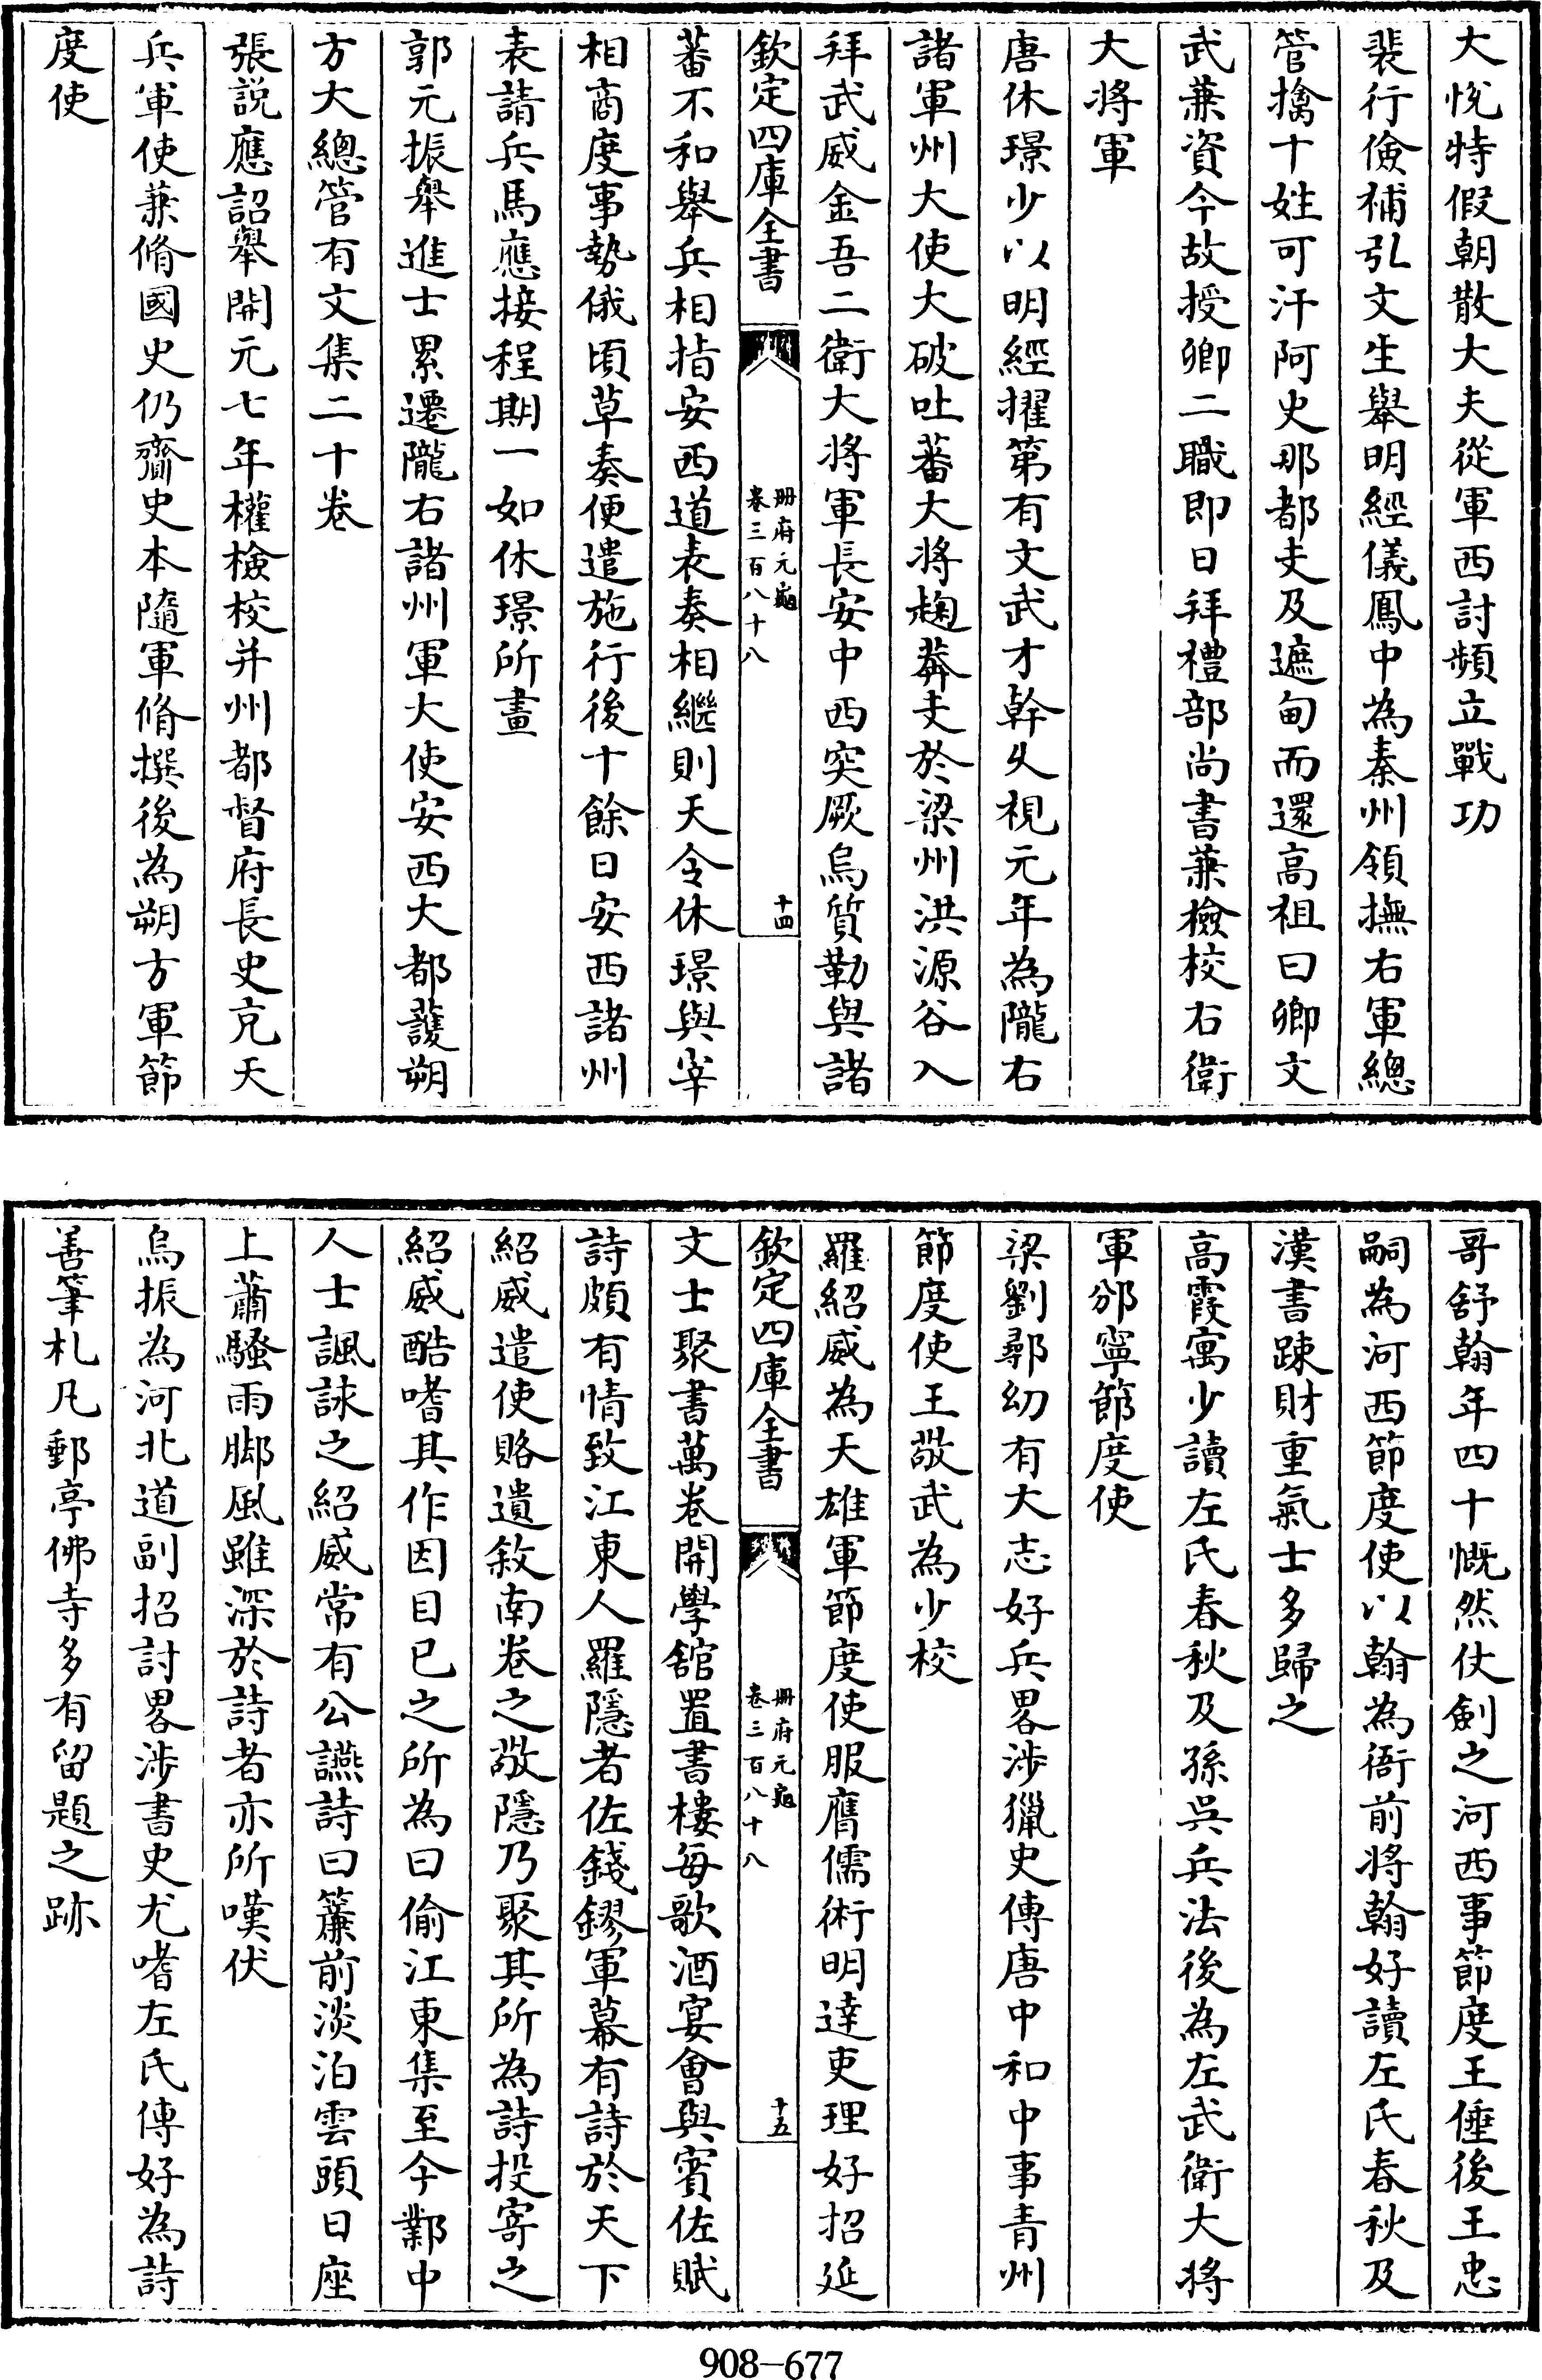 大悅特假朝散大夫從軍西討頻立戰功
裴行儉補引文生舉明經儀鳳中為秦州領撫右軍總
管擒十姓可汗阿史那都支及遮匐而還高祖曰卿文
武兼資今故授卿二職即日拜禮部尚書兼檢校右衛
大將軍
唐休璟少以明經擢第有文武才幹久視元年為隴右
諸軍州大使大破吐蕃大將麹莽支於梁州洪源谷入
拜武威金吾二衛大將軍長安中西突厥烏質勒與諸
欽定四庫全書
冊府元龜
卷三百八十八
十四
蕃不和舉兵相指安西道表奏相繼則天令休璟與宰
相商度事勢俄頃草奏便遣施行後十餘日安西諸州
表請兵馬應接程期一如休璟所畫
郭元振舉進士累遷隴右諸州軍大使安西大都護朔
方大總管有文集二十卷
張說應詔舉開元七年權檢校并州都督府長史充天
兵軍使兼脩國史仍齎史本隨軍脩撰後為朔方軍節
度使
哥舒翰年四十慨然仗劍之河西事節度王倕後王忠
嗣為河西節度使以翰為衙前將翰好讀左氏春秋及
漢書踈財重氣士多歸之
高霞寓少讀左氏春秋及孫吳兵法後為左武衛大將
軍邠寧節度使
梁劉鄩幼有大志好兵畧涉獵史傳唐中和中事青州
節度使王敬武為少校
羅紹威為天雄軍節度使服膺儒術明達吏理好招延
欽定四庫全書
冊府元龜
卷三百八十八
十五
文士聚書萬卷開學舘置書樓每歌酒宴會與賓佐賦
詩頗有情致江東人羅隱者佐錢鏐軍幕有詩於天下
紹威遣使賂遺敘南巷之敬隱乃聚其所為詩投寄之
紹威酷嗜其作因目已之所為曰偷江東集至今鄴中
人士諷詠之紹威常有公讌詩曰簾前淡泊雲頭日座
上蕭騷雨脚風雖深於詩者亦所嘆伏
烏振為河北道副招討畧涉書史尤嗜左氏傳好為詩
善筆札凡郵亭佛寺多有留題之跡
908-677